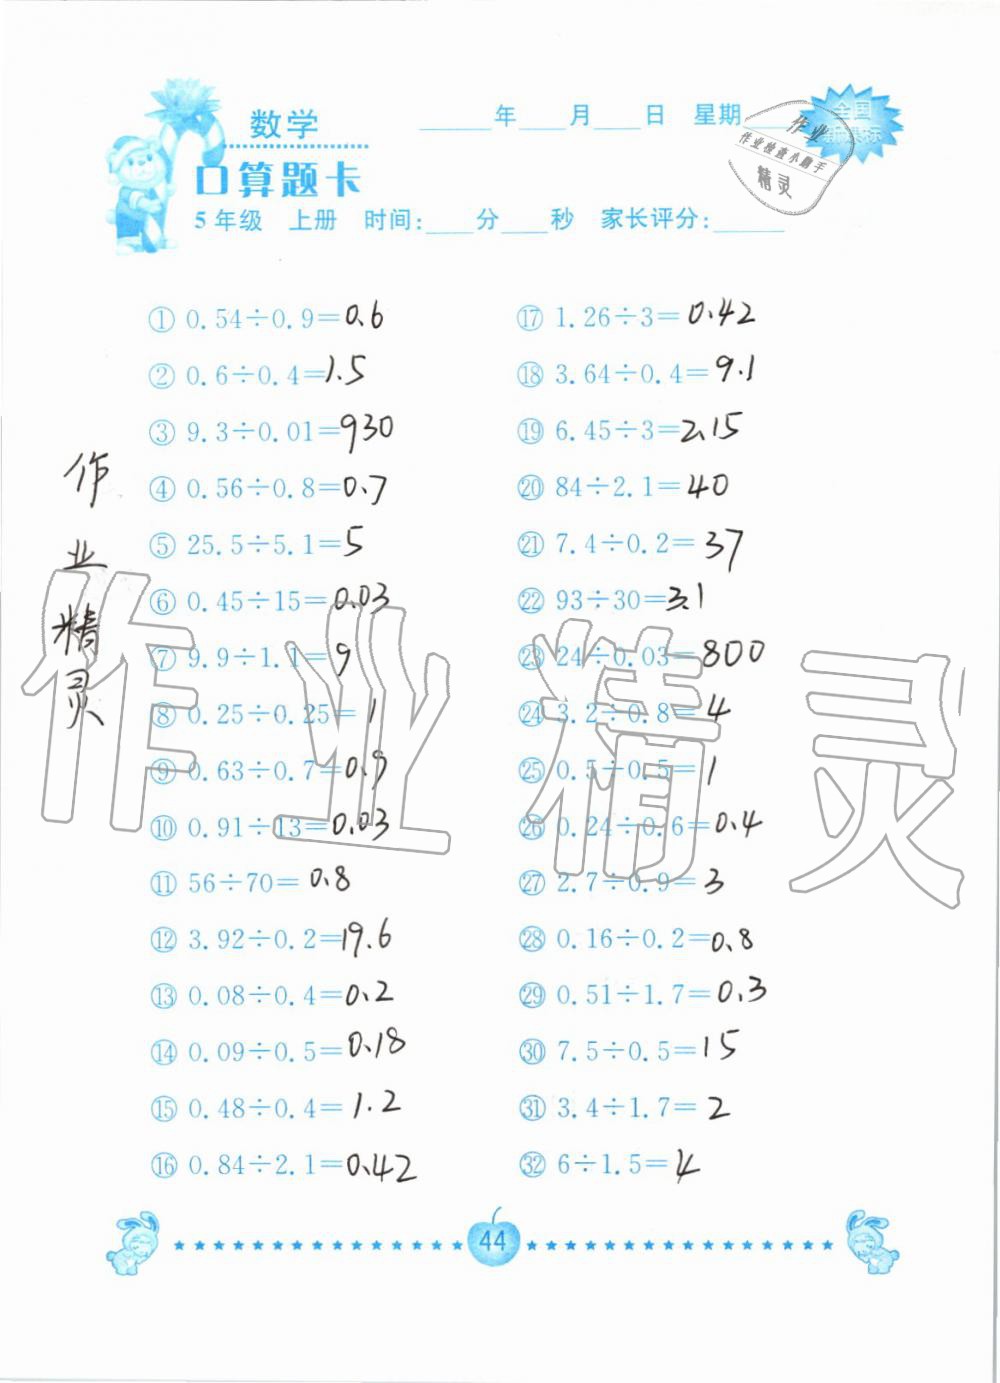 数学
____年____月____日 星期____
全国
新课标
作业
作业检查小助手
精灵
口算题卡
5年级 上册 时间:____分____秒 家长评分:____
① 0.54÷0.9=0.6
② 0.6÷0.4=1.5
③ 9.3÷0.01=930
④ 0.56÷0.8=0.7
⑤ 25.5÷5.1=5
⑥ 0.45÷15=0.03
⑦ 9.9÷1.1=9
⑧ 0.25÷0.25=1
⑨ 0.63÷0.7=0.9
⑩ 0.91÷13=0.03
⑪ 56÷70=0.8
⑫ 3.92÷0.2=19.6
⑬ 0.08÷0.4=0.2
⑭ 0.09÷0.5=0.18
⑮ 0.48÷0.4=1.2
⑯ 0.84÷2.1=0.42
⑰ 1.26÷3=0.42
⑱ 3.64÷0.4=9.1
⑲ 6.45÷3=2.15
⑳ 84÷2.1=40
㉑ 7.4÷0.2=37
㉒ 93÷30=3.1
㉓ 24÷0.03=800
㉔ 3.2÷0.8=4
㉕ 0.5÷0.5=1
㉖ 0.24÷0.6=0.4
㉗ 2.7÷0.9=3
㉘ 0.16÷0.2=0.8
㉙ 0.51÷1.7=0.3
㉚ 7.5÷0.5=15
㉛ 3.4÷1.7=2
㉜ 6÷1.5=4
作业精灵
作业精灵
44